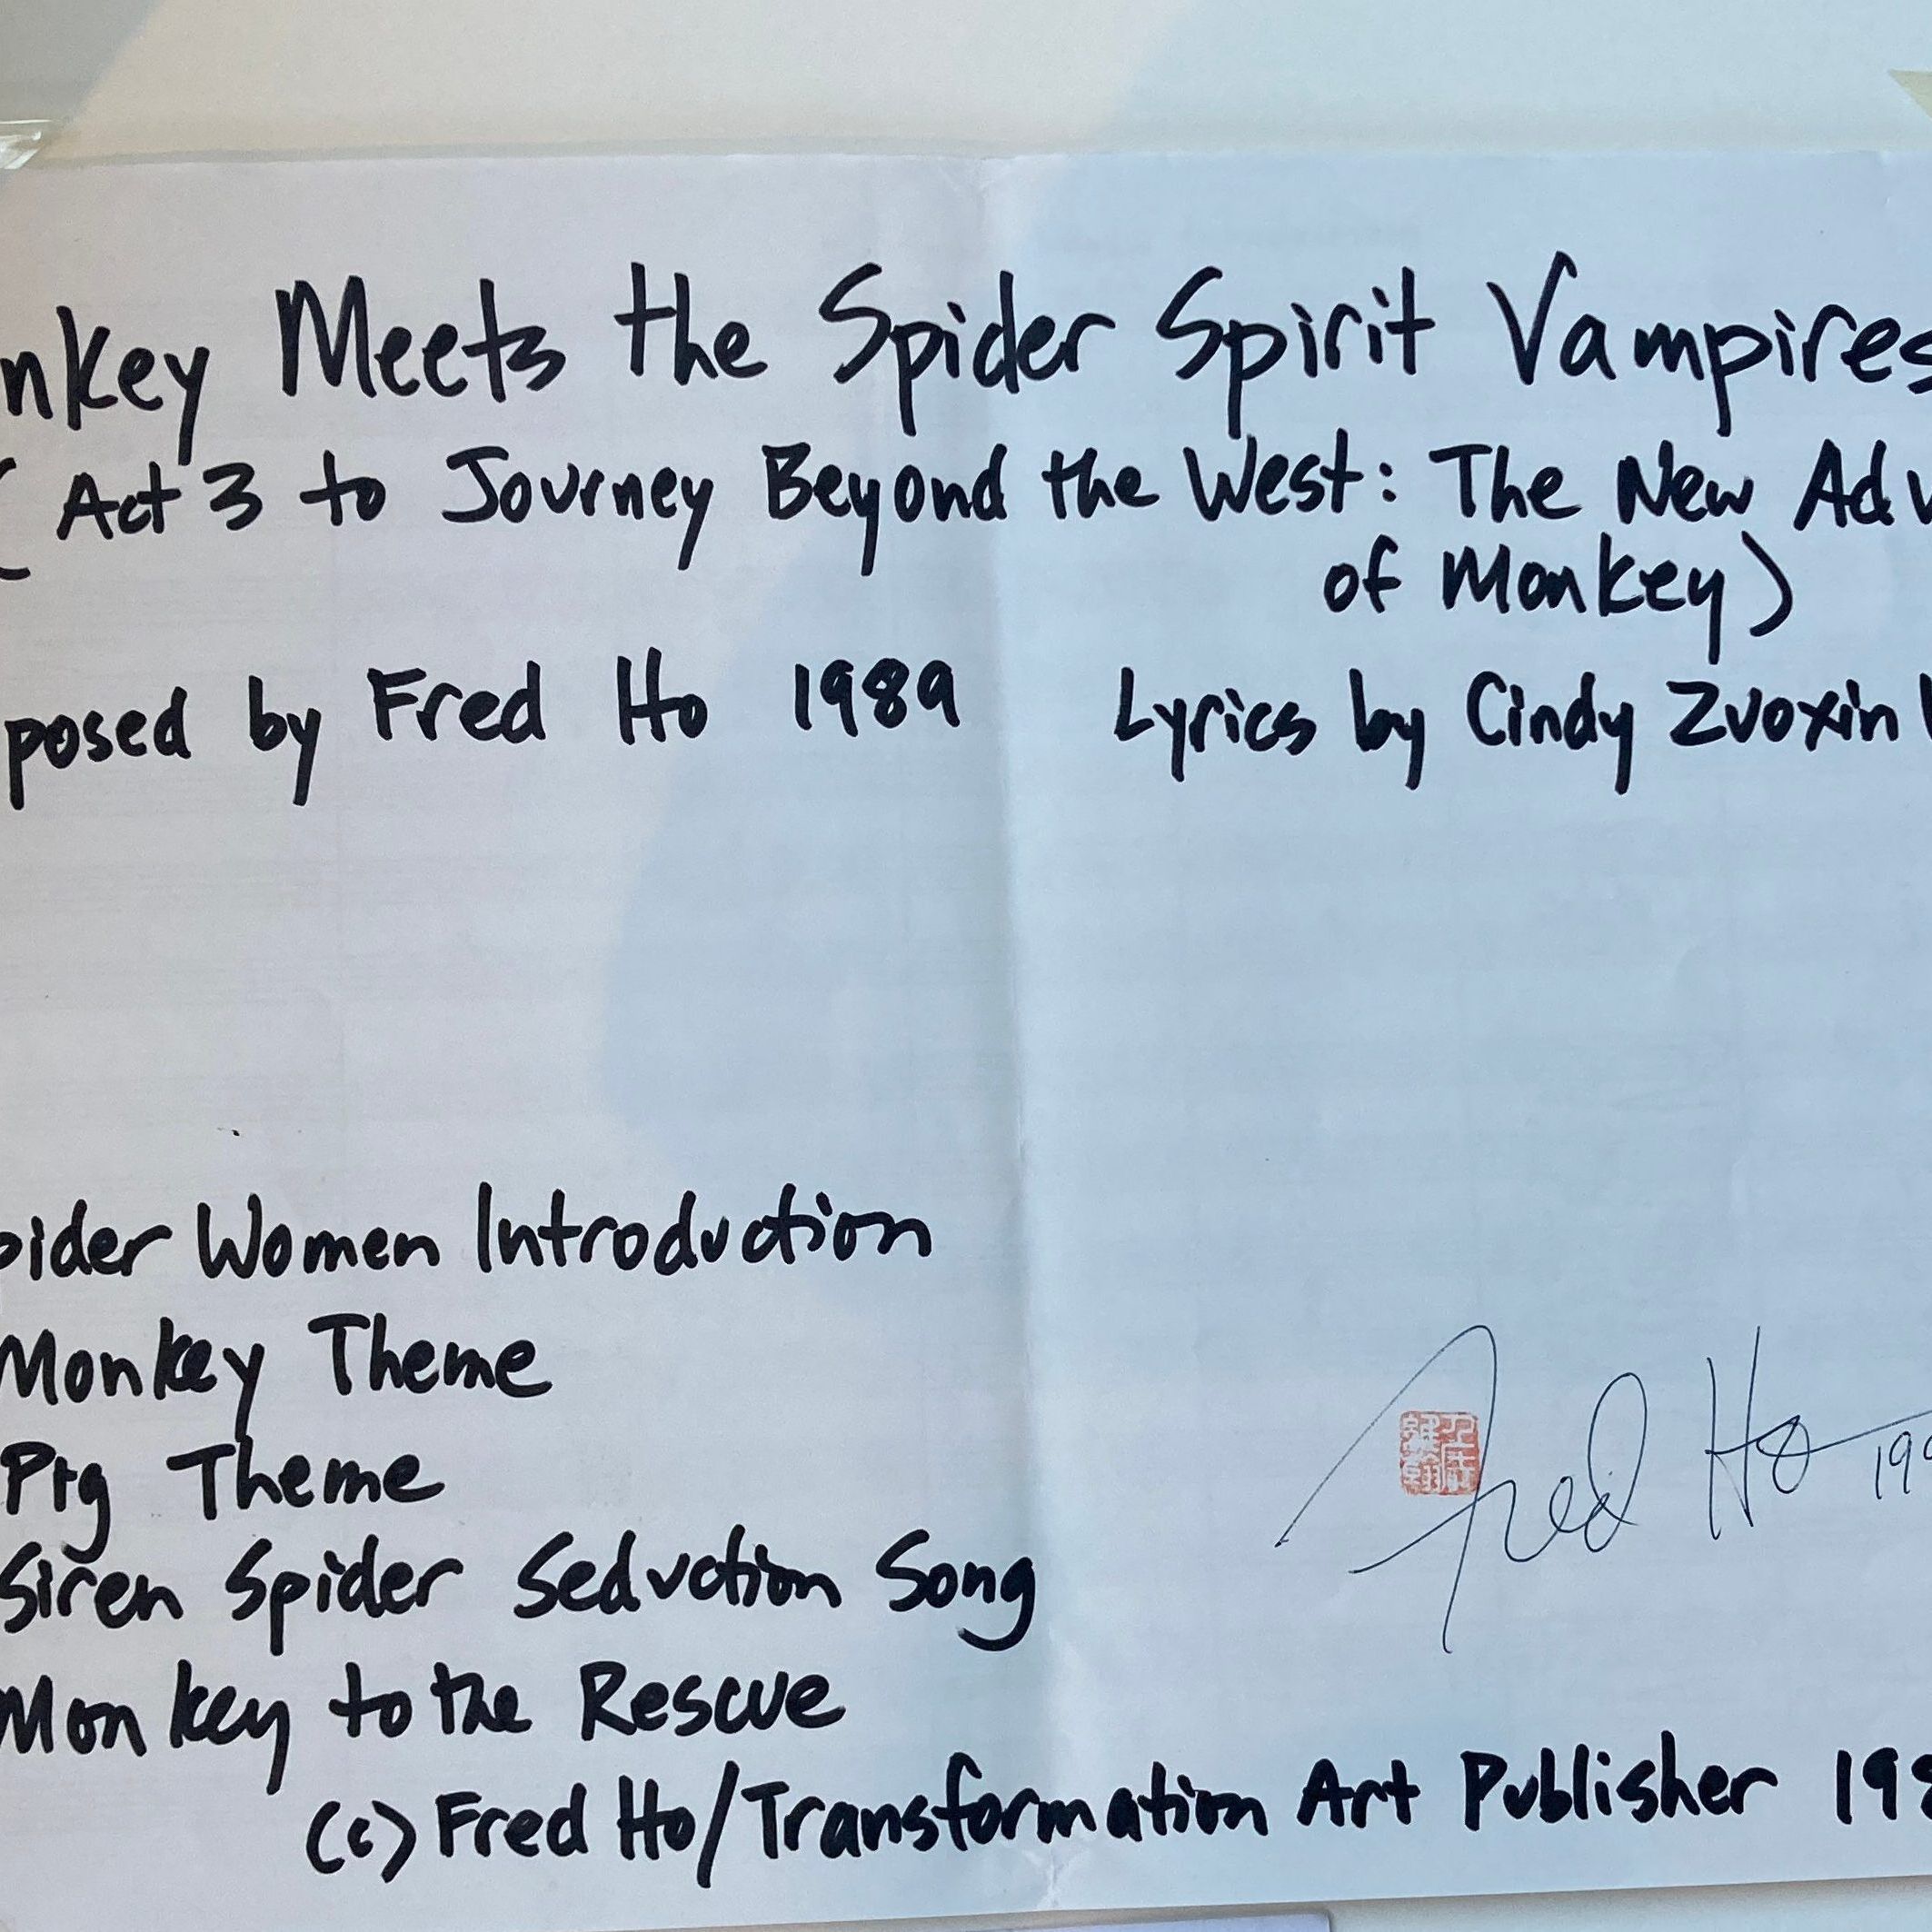 nkey Meets the Spider Spirit Vampires
( Act 3 to Journey Beyond the West: The New Adv
of Monkey)
posed by Fred Ho 1989 Lyrics by Cindy Zuoxin
pider Women Introduction
Monkey Theme
Pig Theme
Siren Spider Seduction Song
Monkey to the Rescue
Fred Ho 199
(c) Fred Ho/Transformation Art Publisher 198